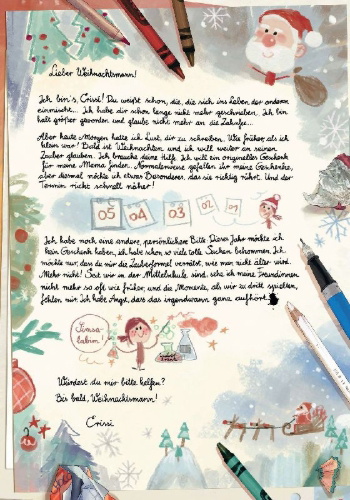 Lieber Weihnachtsmann!
Ich bin's, Crissi! Du weißt schon, die, die sich ins Leben der anderen
einmischt... Ich habe dir schon lange nicht mehr geschrieben. Ich bin
halt größer geworden und glaube nicht mehr an die Zahnfee...
Aber heute Morgen hatte ich Lust, dir zu schreiben. Wie früher, als ich
klein war! Bald ist Weihnachten und ich will weiter an seinen
Zauber glauben. Ich brauche deine Hilfe. Ich will ein originelles Geschenk
für meine Mama finden. Normalerweise gefallen ihr meine Geschenke,
aber diesmal möchte ich etwas Besonderes, das sie richtig rührt. Und der
Termin rückt schnell näher!
05 04 03 02 01
Ich habe noch eine andere, persönlichere Bitte. Dieses Jahr möchte ich
kein Geschenk haben, ich habe schon so viele tolle Sachen bekommen. Ich
möchte nur, dass du mir die Zauberformel verrätst, wie man nicht älter wird.
Mehr nicht! Seit wir in der Mittelschule sind, sehe ich meine Freundinnen
nicht mehr so oft wie früher, und die Momente, als wir zu dritt spielten,
fehlen mir. Ich habe Angst, dass das irgendwann ganz aufhört.
Simsa-
labim!
Würdest du mir bitte helfen?
Bis bald, Weihnachtsmann!
Crissi